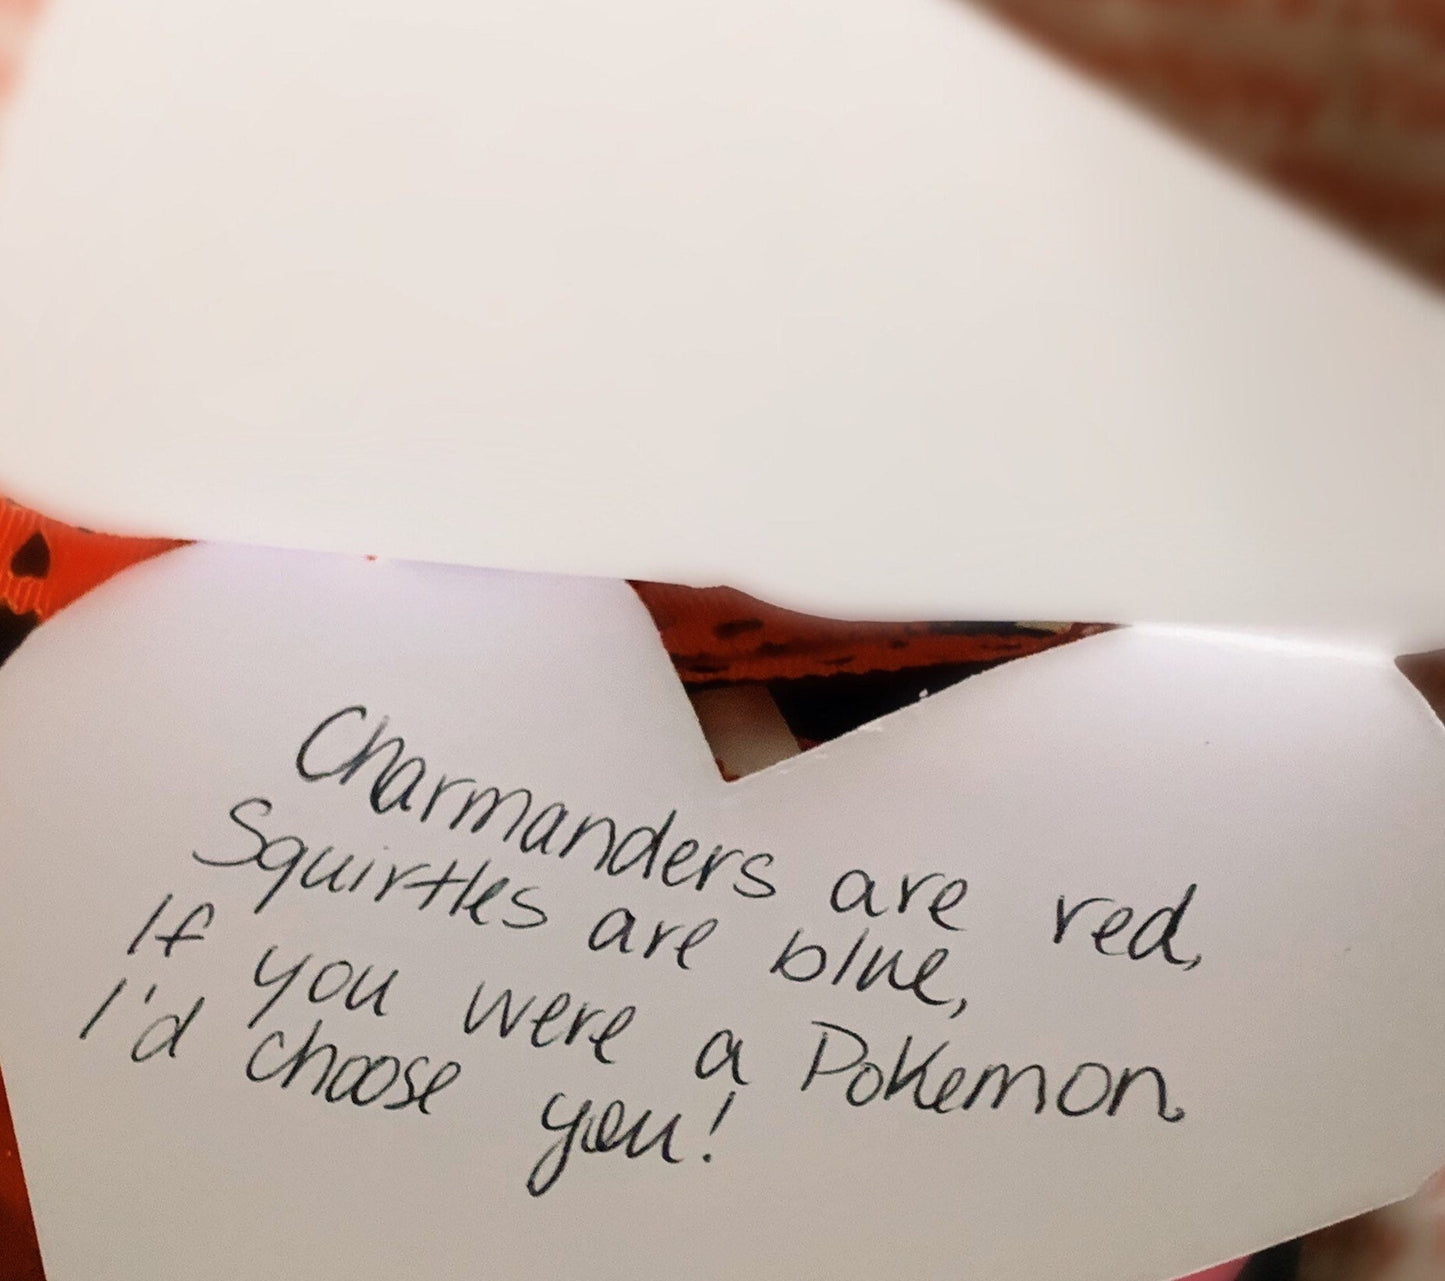 Charmanders are red,
Squirtles are blue,
If you were a Pokemon,
I'd choose you!